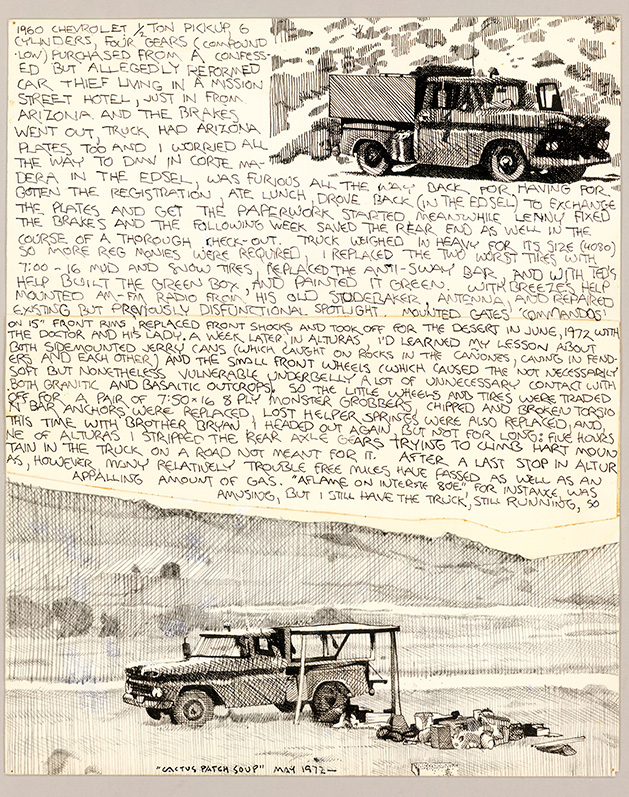 1960 CHEVROLET 1/2 TON PICKUP, 6
CYLINDERS, FOUR GEARS (COMPOUND
LOW) PURCHASED FROM A CONFESS-
ED BUT ALLEGEDLY REFORMED
CAR THIEF LIVING IN A MISSION
STREET HOTEL, JUST IN FROM
ARIZONA AND THE BRAKES
WENT OUT, TRUCK HAD ARIZONA
PLATES TOO AND I WORRIED ALL
THE WAY TO DMV IN CORTE MA-
DERA IN THE EDSEL, WAS FURIOUS ALL THE WAY BACK FOR HAVING FOR
GOTTEN THE REGISTRATION, ATE LUNCH, DROVE BACK (IN THE EDSEL) TO EXCHANGE
THE PLATES AND GET THE PAPERWORK STARTED MEANWHILE LENNY FIXED
THE BRAKES AND THE FOLLOWING WEEK SAVED THE REAR END AS WELL IN THE
COURSE OF A THOROUGH CHECK-OUT. TRUCK WEIGHED IN HEAVY FOR ITS SIZE (4080)
SO MORE REG MONIES WERE REQUIRED, I REPLACED THE TWO WORST TIRES WITH
7:00-16 MUD AND SNOW TIRES, REPLACED THE ANTI-SWAY BAR, AND WITH TED'S
HELP BUILT THE GREEN BOX, AND PAINTED IT GREEN. WITH BREEZE'S HELP
MOUNTED AM-FM RADIO FROM HIS OLD STUDEBAKER, ANTENNA, AND REPAIRED
EXISTING BUT PREVIOUSLY DISFUNCTIONAL SPOTLIGHT. MOUNTED GATES' "COMMANDOS"
ON 15" FRONT RIMS, REPLACED FRONT SHOCKS AND TOOK OFF FOR THE DESERT IN JUNE, 1972 WITH
THE DOCTOR AND HIS LADY. A WEEK LATER, IN ALTURAS, I'D LEARNED MY LESSON ABOUT
BOTH SIDEMOUNTED JERRY CANS (WHICH CAUGHT ON ROCKS IN THE CAÑONES, CAVING IN FEND-
ERS AND EACH OTHER) AND THE SMALL FRONT WHEELS (WHICH CAUSED THE NOT NECESSARILY
SOFT BUT NONETHELESS VULNERABLE UNDERBELLY A LOT OF UNNECESSARY CONTACT WITH
BOTH GRANITIC AND BASALTIC OUTCROPS). SO THE LITTLE WHEELS AND TIRES WERE TRADED
OFF FOR A PAIR OF 7:50x16 8 PLY MONSTER GRODBERS, CHIPPED AND BROKEN TORSIO
N BAR ANCHORS WERE REPLACED, LOST HELPER SPRINGS WERE ALSO REPLACED, AND,
THIS TIME WITH BROTHER BRYAN I HEADED OUT AGAIN, BUT NOT FOR LONG: FIVE HOURS
NE OF ALTURAS I STRIPPED THE REAR AXLE GEARS TRYING TO CLIMB HART MOUN
TAIN IN THE TRUCK ON A ROAD NOT MEANT FOR IT. AFTER A LAST STOP IN ALTUR
AS, HOWEVER, MANY RELATIVELY TROUBLE FREE MILES HAVE PASSED, AS WELL AS AN
APPALLING AMOUNT OF GAS. "AFLAME ON INTERSTE 80E" FOR INSTANCE, WAS
AMUSING, BUT I STILL HAVE THE TRUCK, STILL RUNNING, SO
"CACTUS PATCH SOUP" MAY 1972—